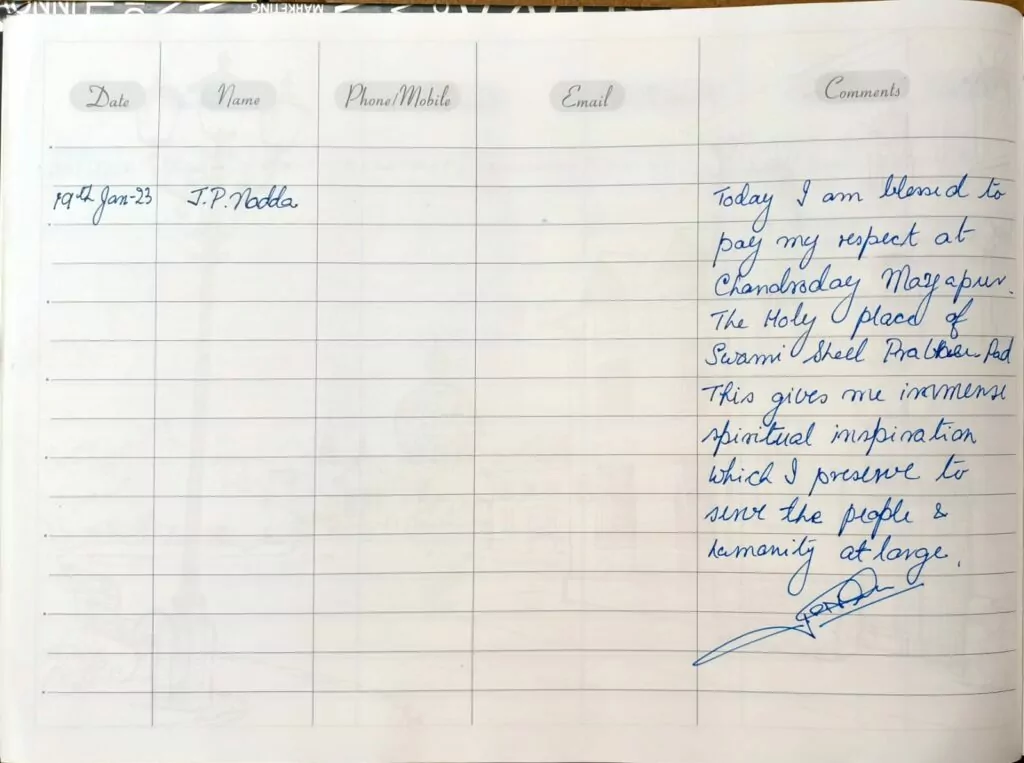 MARKETING
Date Name Phone/Mobile Email Comments
19th Jan-23 J.P. Nadda Today I am blessed to
pay my respect at
Chandroday Mayapur.
The Holy place of
Swami Sheel Pad
This gives me immense
spiritual inspiration
which I preserve to
serve the people &
humanity at large.